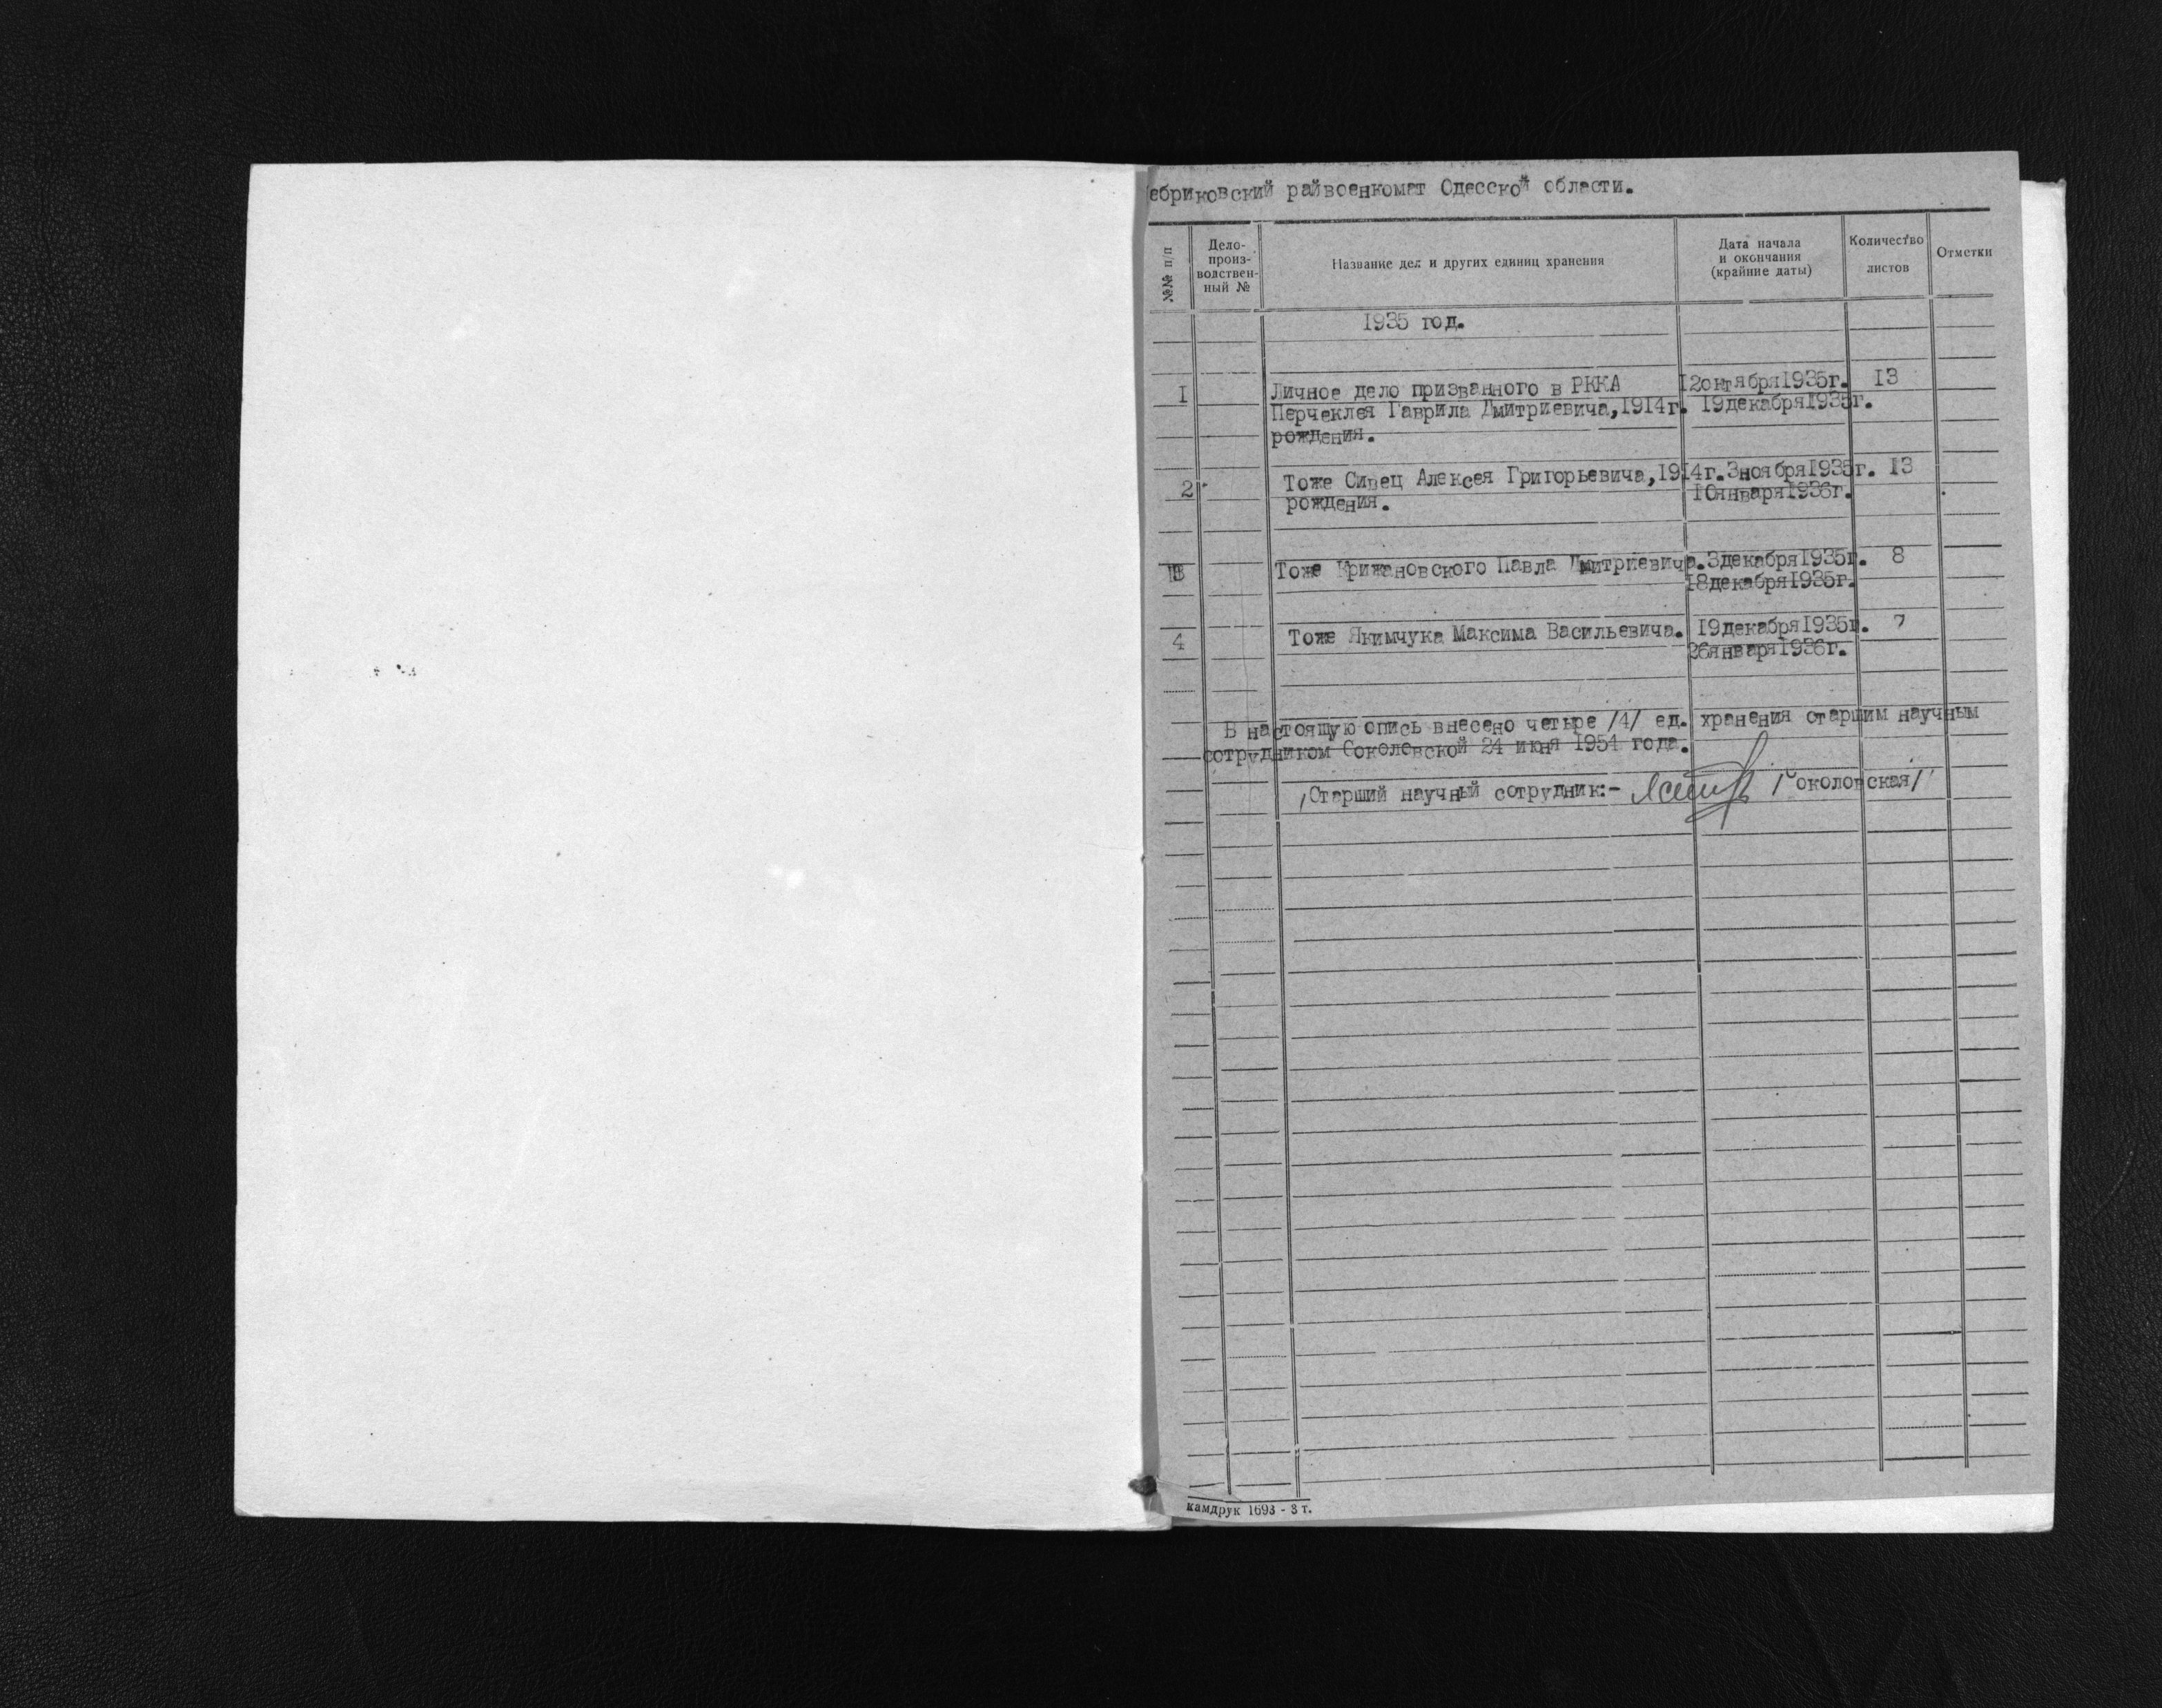 ебриковский райвоенкомат Одесской области.
№№ п/п
Дело-
произ-
водствен-
ный №
Название дел и других единиц хранения
Дата начала
и окончания
(крайние даты)
Количество
листов
Отметки
1935 год.
1 Личное дело призванного в РККА 12октября1935г. 13
Перчеклея Гаврила Дмитриевича,1914г. 19декабря1935г.
рождения.
2 Тоже Сивец Алексея Григорьевича,1914г. 3ноября1935г. 13
рождения. 10января1936г.
3 Тоже Крижановского Павла Дмитриевича. 3декабря1935г. 8
18декабря1935г.
4 Тоже Якимчука Максима Васильевича. 19декабря1935г. 7
26января1936г.
В настоящую опись внесено четыре /4/ ед. хранения старшим научным
сотрудником Соколовской 24 июня 1954 года.
Старший научный сотрудник:- /Соколовская/
камдрук 1693 - 3 т.